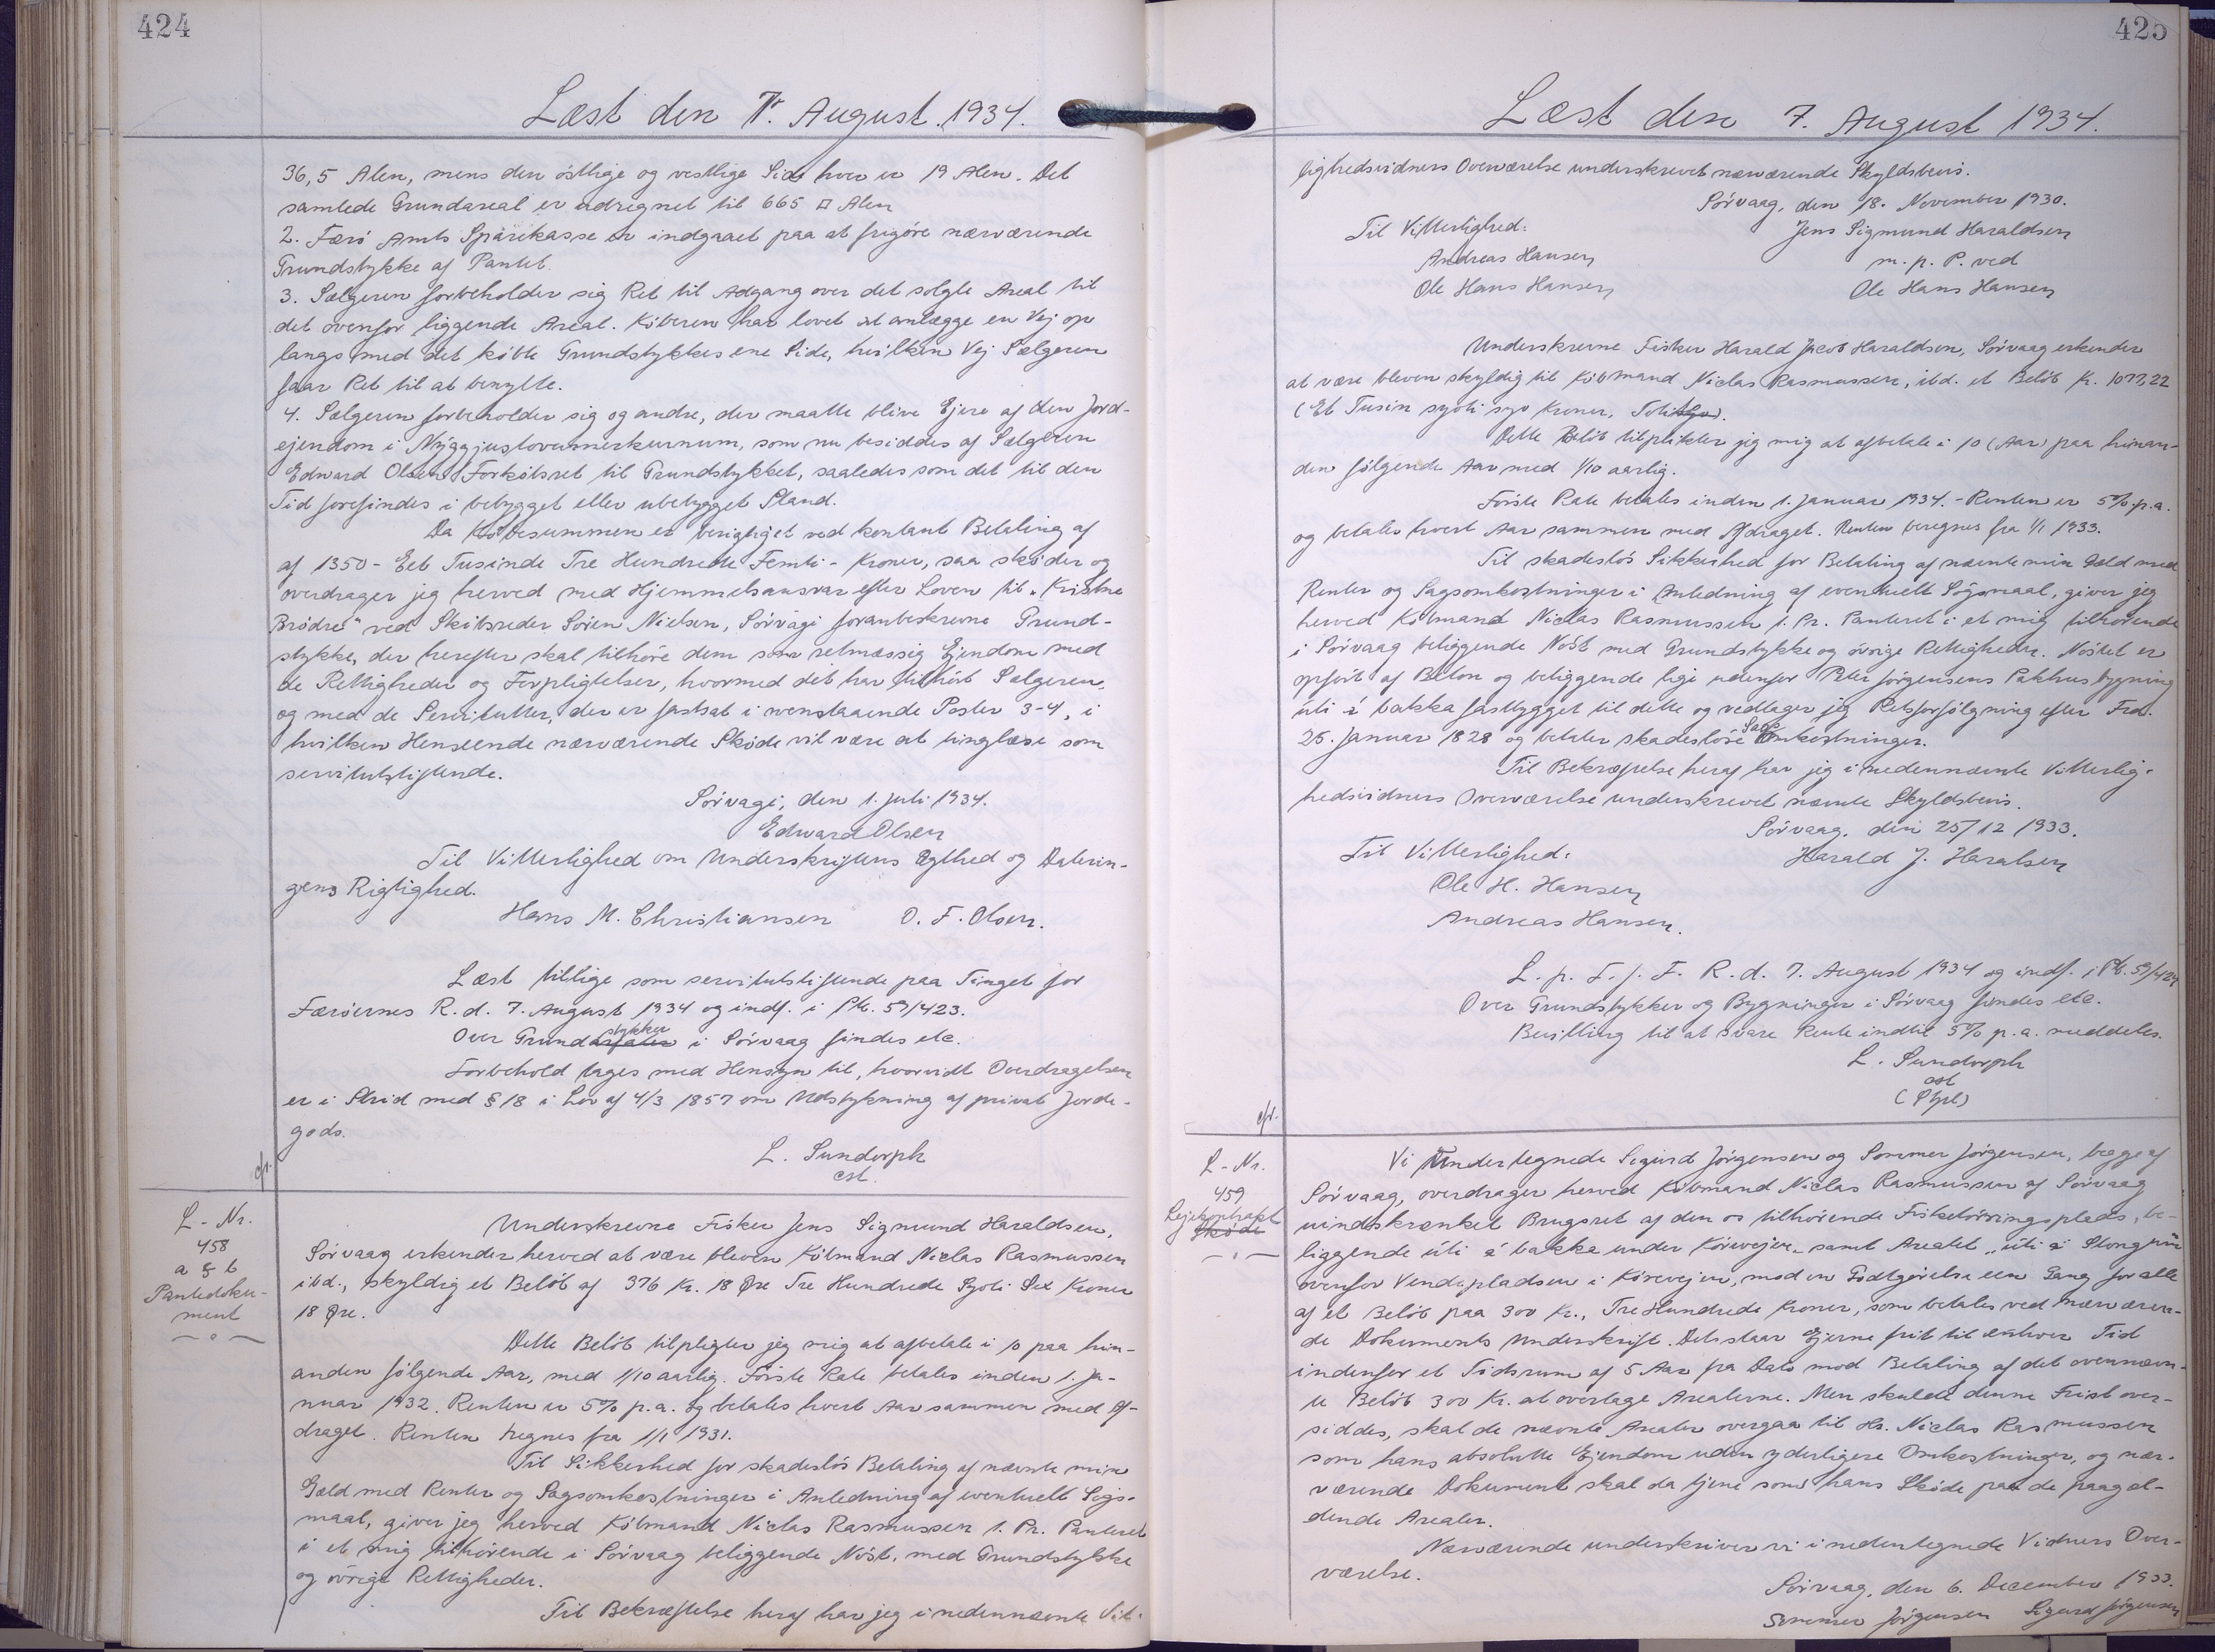 424
Læst den 7. August 1934.
36,5 Alen, mens den östlige og vestlige Side hver er 19 Alen. Det
samlede Grundareal er udregnet til 665 □ Alen
2. Færö Amts Sparekasse er indgaaet paa at frigöre nærværende
Grundstykke af Pantet.
3. Sælgeren forbeholder sig Ret til Adgang over det solgte Areal til
det ovenfor liggende Areal. Köberen har lovet at anlægge en Vej op
langs med det köbte Grundstykkes ene Side, hvilken Vej Sælgeren
faar Ret til at benytte.
4. Sælgeren forbeholder sig og andre, der maatte blive Ejere af den Jord-
ejendom i , som nu besiddes af Sælgeren
Edward Olsen Forköbsret til Grundstykket, saaledes som det til den
Tid forefindes i bebygget eller ubebygget Stand.
Da Köbesummen er berigtiget ved kontant Betaling af
af 1350 - Eet Tusinde Tre Hundrede Femti - Kroner, saa sköder og
overdrager jeg herved med Hjemmelsansvar efter Loven til "Kristne
Brödre" ved Skibsreder Sören Nielsen, Sörvági foranbeskrevne Grund-
stykke, der herefter skal tilhöre dem som retmæssig Ejendom med
de Rettigheder og Forpligtelser, hvormed det har tilhört Sælgeren,
og med de Servitutter, der er fastsat i ovenstaaende Poster 3-4, i
hvilken Henseende nærværende Sköde vil være at tinglæse som
servitutstiftende.
Sörvagi, den 1. Juli 1934.
Edward Olsen
Til Vitterlighed om Underskriftens Ægthed og Daterin-
gens Rigtighed.
Hans M. Christiansen O. F. Olsen.
Læst tillige som servitutstiftende paa Tinget for
Færöernes R. d. 7. August 1934 og indf. i Pk. 59/423.
Over Grundstykker i Sörvaag findes etc.
Forbehold tages med Hensyn til, hvorvidt Overdragelsen
er i Strid med § 18 i Lov af 4/3 1857 om Udstykning af privat Jorde-
gods.
L. Sundorph
cst.
cfr.
L-Nr.
458
a & b
Pantedoku-
ment
Underskrevne Fisker Jens Sigmund Haraldsen,
Sörvaag erkender herved at være bleven Köbmand Niclas Rasmussen
ibd., skyldig et Belöb af 376 Kr. 18 Øre Tre Hundrede Syvti Sex Kroner
18 Øre.
Dette Belöb tilpligter jeg mig at afbetale i 10 paa hin-
anden fölgende Aar, med 1/10 aarlig. Förste Rate betales inden 1. Ja-
nuar 1932. Renten er 5% p.a. og betales hvert Aar sammen med Af-
draget. Renten regnes fra 1/1 1931.
Til Sikkerhed for skadeslös Betaling af nævnte min
Gæld med Renter og Sagsomkostninger i Anledning af eventuelt Sögs-
maal, giver jeg herved Köbmand Niclas Rasmussen 1. Pr. Panteret
i et mig tilhörende i Sörvaag beliggende Nöst, med Grundstykke
og övrige Rettigheder.
Til Bekræftelse heraf har jeg i nedennævnte Vit-
425
Læst den 7. August 1934.
lighedsvidners Overværelse underskrevet nærværende Skyldsbevis.
Sörvaag, den 18. November 1930.
Til Vitterlighed: Jens Sigmund Haraldsen
Andreas Hansen m. p. P. ved
Ole Hans Hansen Ole Hans Hansen
Underskrevne Fisker Harald Jacob Haraldsen, Sörvaag erkender
at være bleven skyldig til Köbmand Niclas Rasmussen, ibd. et Belöb Kr. 1077,22
(Et Tusin syvti syv Kroner,
Dette Belöb tilplikter jeg mig at afbetale i 10 (Aar) paa hinan-
den fölgende Aar med 1/10 aarlig.
Förste Rate betales inden 1. Januar 1934. - Renten er 5% p.a.
og betales hvert Aar sammen med Afdraget. Renten beregnes fra 1/1 1933.
Til skadeslös Sikkerhed for Betaling af nævnte min Gæld med
Renter og Sagsomkostninger i Anledning af eventuelt Sögsmaal, giver jeg
herved Köbmand Niclas Rasmussen 1. Pr. Panteret i et mig tilhörende
i Sörvaag beliggende Nöst med Grundstykke og övrige Rettigheder. Nöstet er
opfört af Beton og beliggende lige udenfor Peter Jörgensens Pakhusbygning
úti á bakka fastbygget til dette og vedtager jeg Retsforfölgning efter Frd.
25. Januar 1828 og betaler skadeslöse Sags Omkostninger.
Til Bekræftelse heraf har jeg i nedennævnte Vitterlig-
hedsvidners Overværelse underskrevet nævnte Skyldsbevis.
Sörvaag, den 25/12 1933.
Til Vitterlighed: Harald J. Haralsen
Ole H. Hansen
Andreas Hansen.
L. p. T. f. F. R. d. 7. August 1934 og indf. i Pk. 59/424
Over Grundstykker og Bygninger i Sörvaag findes etc.
Bevilling til at svare Rente indtil 5% p. a. meddeles.
L. Sundorph
cst
cfr.
L-Nr.
459
Lejekontrakt
Sköde
Vi Undertegnede Sigurd Jörgensen og Sommer Jörgensen, begge af
Sörvaag, overdrager herved Köbmand Niclas Rasmussen af Sörvaag
uindskrænket Brugsret af den os tilhörende Fisketörringsplads, be-
liggende úti á bakka under Körevejen samt Arealet "úti á
ovenfor Vendepladsen i Körevejen, mod en Godtgörelse een Gang for alle
af et Belöb paa 300 Kr., Tre Hundrede Kroner, som betales ved nærværen-
de Dokuments Underskrift. Det staar Ejerne frit til enhver Tid
indenfor et Tidsrum af 5 Aar fra Dato mod Betaling af det ovennævn-
te Belöb 300 Kr. at overtage Arealerne. Men skulde denne Frist over-
siddes, skal de nævnte Arealer overgaa til Hr. Niclas Rasmussen
som hans absolutte Ejendom uden yderligere Omkostninger, og nær-
værende Dokument skal da tjene som hans Sköde paa de paagæl-
dende Arealer.
Nærværende underskriver vi i nedentegnede Vidners Over-
værelse.
Sörvaag, den 6. December 1933.
Sommer Jörgensen Sigurd Jörgensen